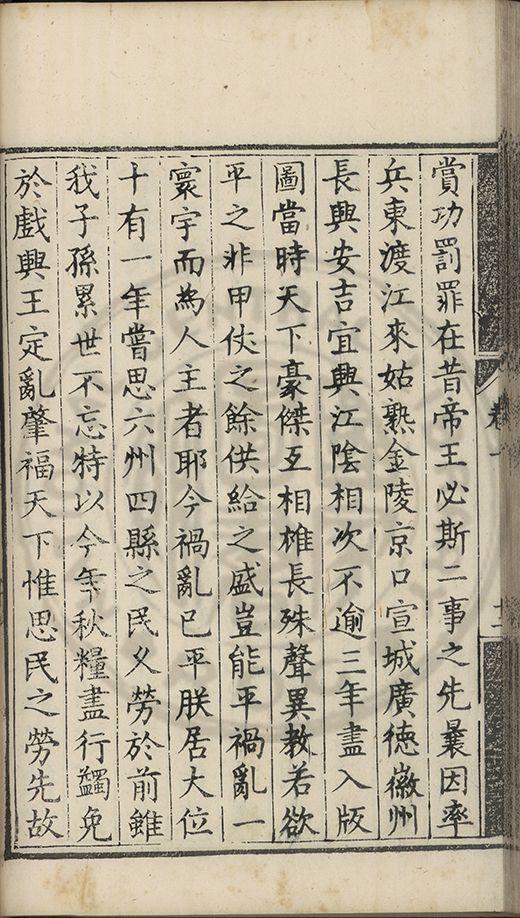 卷一
十二
賞功罰罪在昔帝王必斯二事之先曩因率
兵東渡江來姑熟金陵京口宣城廣德徽州
長興安吉宜興江陰相次不逾三年盡入版
圖當時天下豪傑互相雄長殊聲異教若欲
平之非甲伕之餘供給之盛豈能平禍亂一
寰宇而為人主者耶今禍亂已平朕居大位
十有一年嘗思六州四縣之民乂勞於前雖
我子孫累世不忘特以今年秋糧盡行蠲免
於戲興王定亂肇福天下惟思民之勞先故